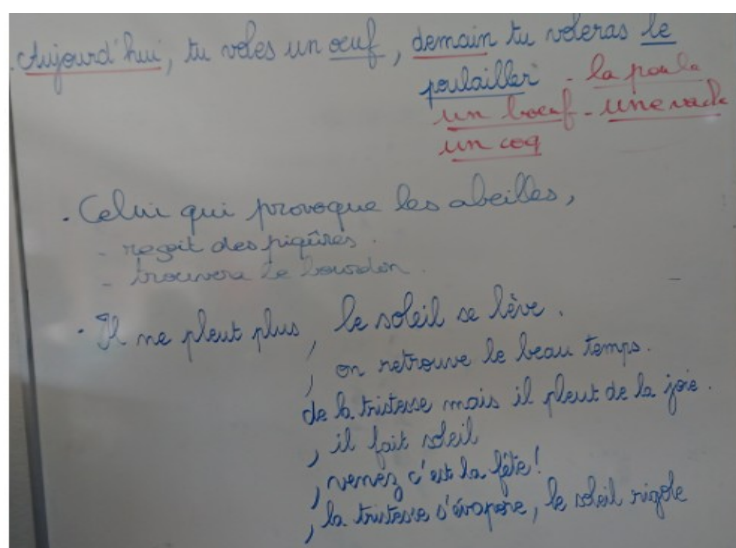 . Aujourd'hui, tu voles un œuf, demain tu voleras le
poulailler - la poule
un bœuf - une vache
un coq
. Celui qui provoque les abeilles,
- reçoit des piqûres.
- trouvera le bourdon.
. Il ne pleut plus, le soleil se lève.
, on retrouve le beau temps.
de la tristesse mais il pleut de la joie.
, il fait soleil
, venez c'est la fête!
, la tristesse s'évapore, le soleil rigole